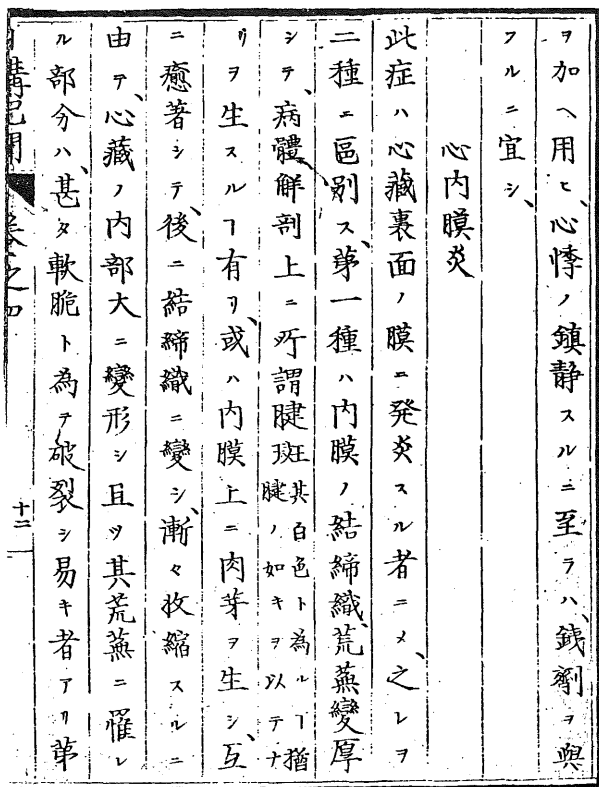 ヲ加ヘ用ヒ、心悸ノ鎮静スルニ至ラハ、鉄劑ヲ與
フルニ宜シ、
心内膜炎
此症ハ心藏裏面ノ膜ニ発炎スル者ニメ、之レヲ
二種ニ區別ス、第一種ハ内膜ノ結締織、荒蕪變厚
シテ、病體解剖上ニ所謂腱斑其百色ト為ルヿ猶腱ノ如キヲ以テナ
リヲ生スルヿ有リ、或ハ内膜上ニ肉芽ヲ生シ、互
ニ癒著シテ、後ニ結締織ニ變シ、漸々收縮スルニ
由テ、心藏ノ内部大ニ變形シ且ツ其荒蕪ニ罹レ
ル部分ハ、甚タ軟脆ト為テ破裂シ易キ者アリ第
講已聞 卷之四
十二